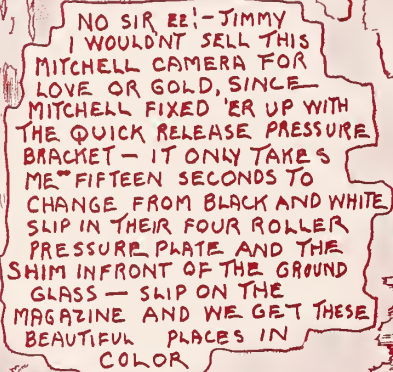 NO SIR EE!-JIMMY
I WOULDN'T SELL THIS
MITCHELL CAMERA FOR
LOVE OR GOLD, SINCE
MITCHELL FIXED 'ER UP WITH
THE QUICK RELEASE PRESSURE
BRACKET - IT ONLY TAKES
ME FIFTEEN SECONDS TO
CHANGE FROM BLACK AND WHITE
SLIP IN THEIR FOUR ROLLER
PRESSURE PLATE AND THE
SHIM INFRONT OF THE GROUND
GLASS - SLIP ON THE
MAGAZINE AND WE GET THESE
BEAUTIFUL PLACES IN
COLOR